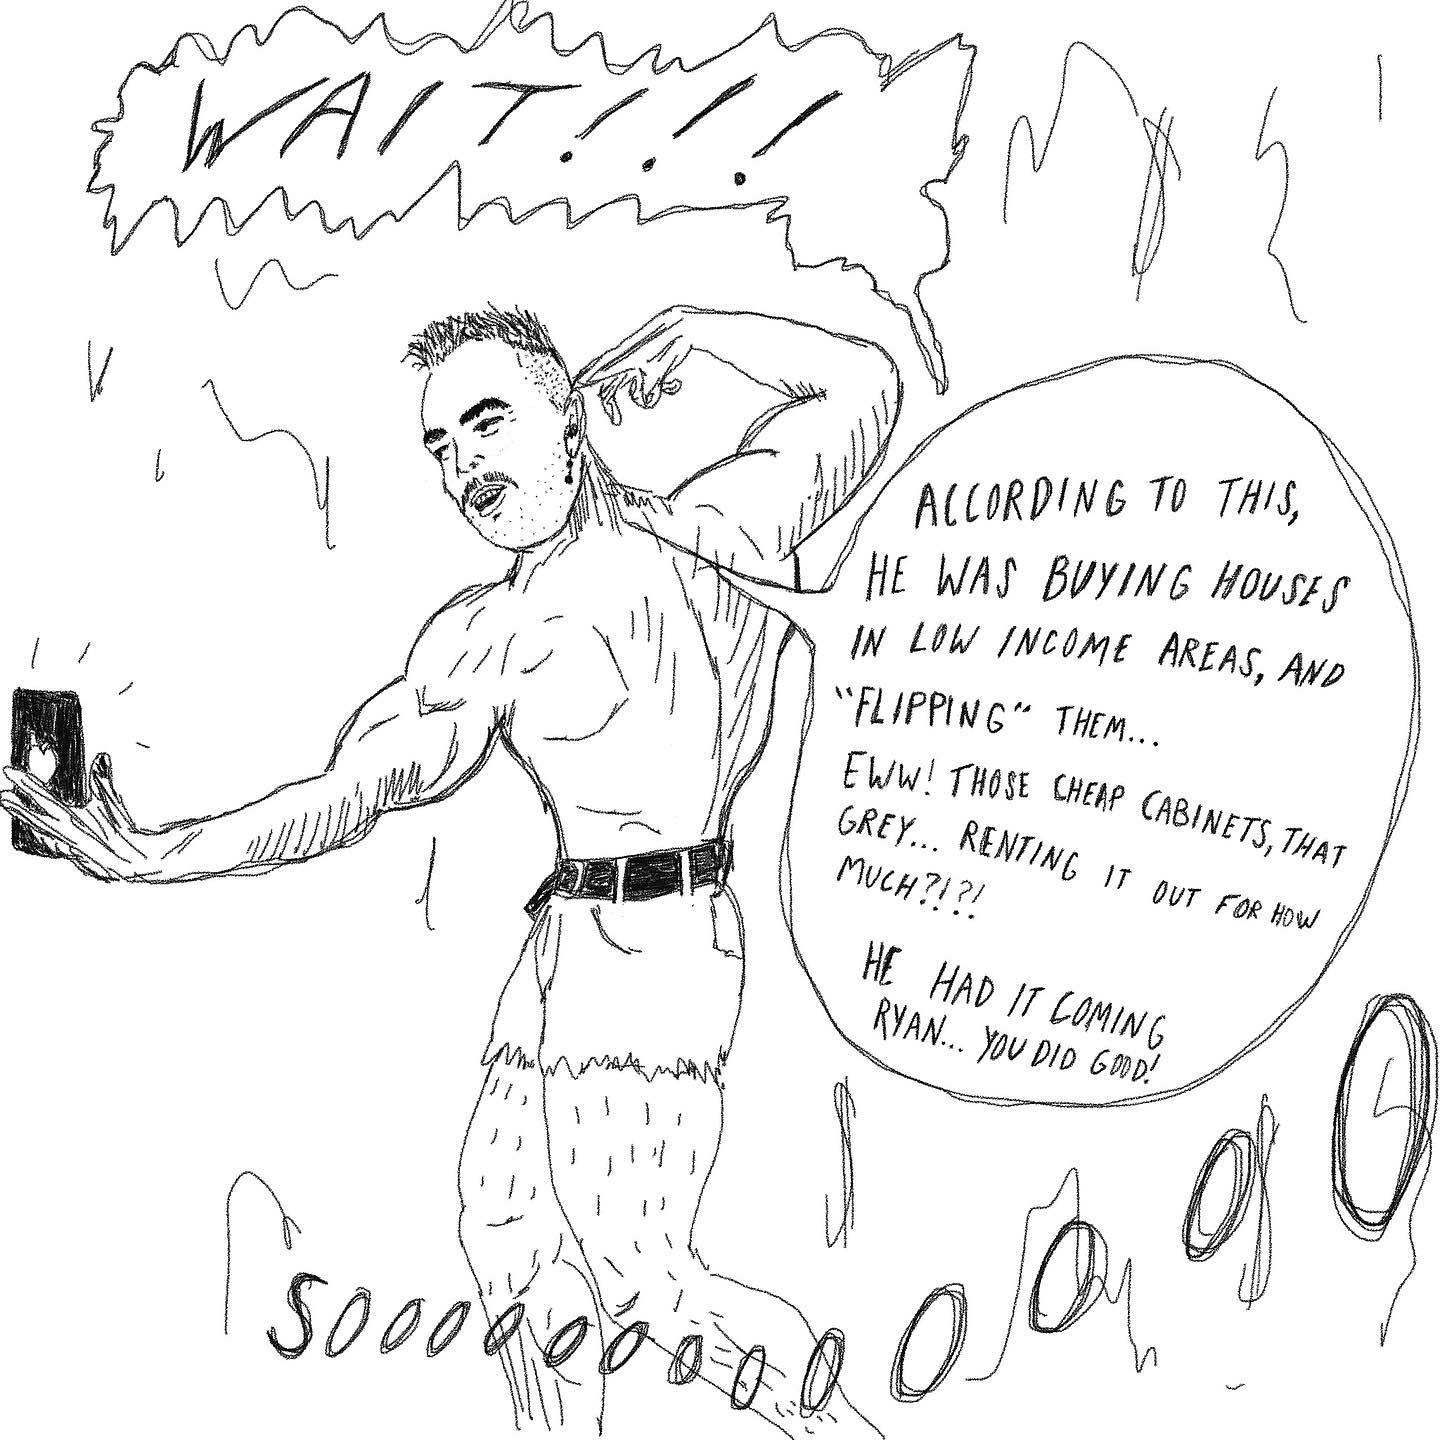 WAIT!!!
ACCORDING TO THIS,
HE WAS BUYING HOUSES
IN LOW INCOME AREAS, AND
"FLIPPING" THEM...
EWW! THOSE CHEAP CABINETS, THAT
GREY... RENTING IT OUT FOR HOW
MUCH?!?!
HE HAD IT COMING
RYAN... YOU DID GOOD!
SOOOOOOOOOOOOO